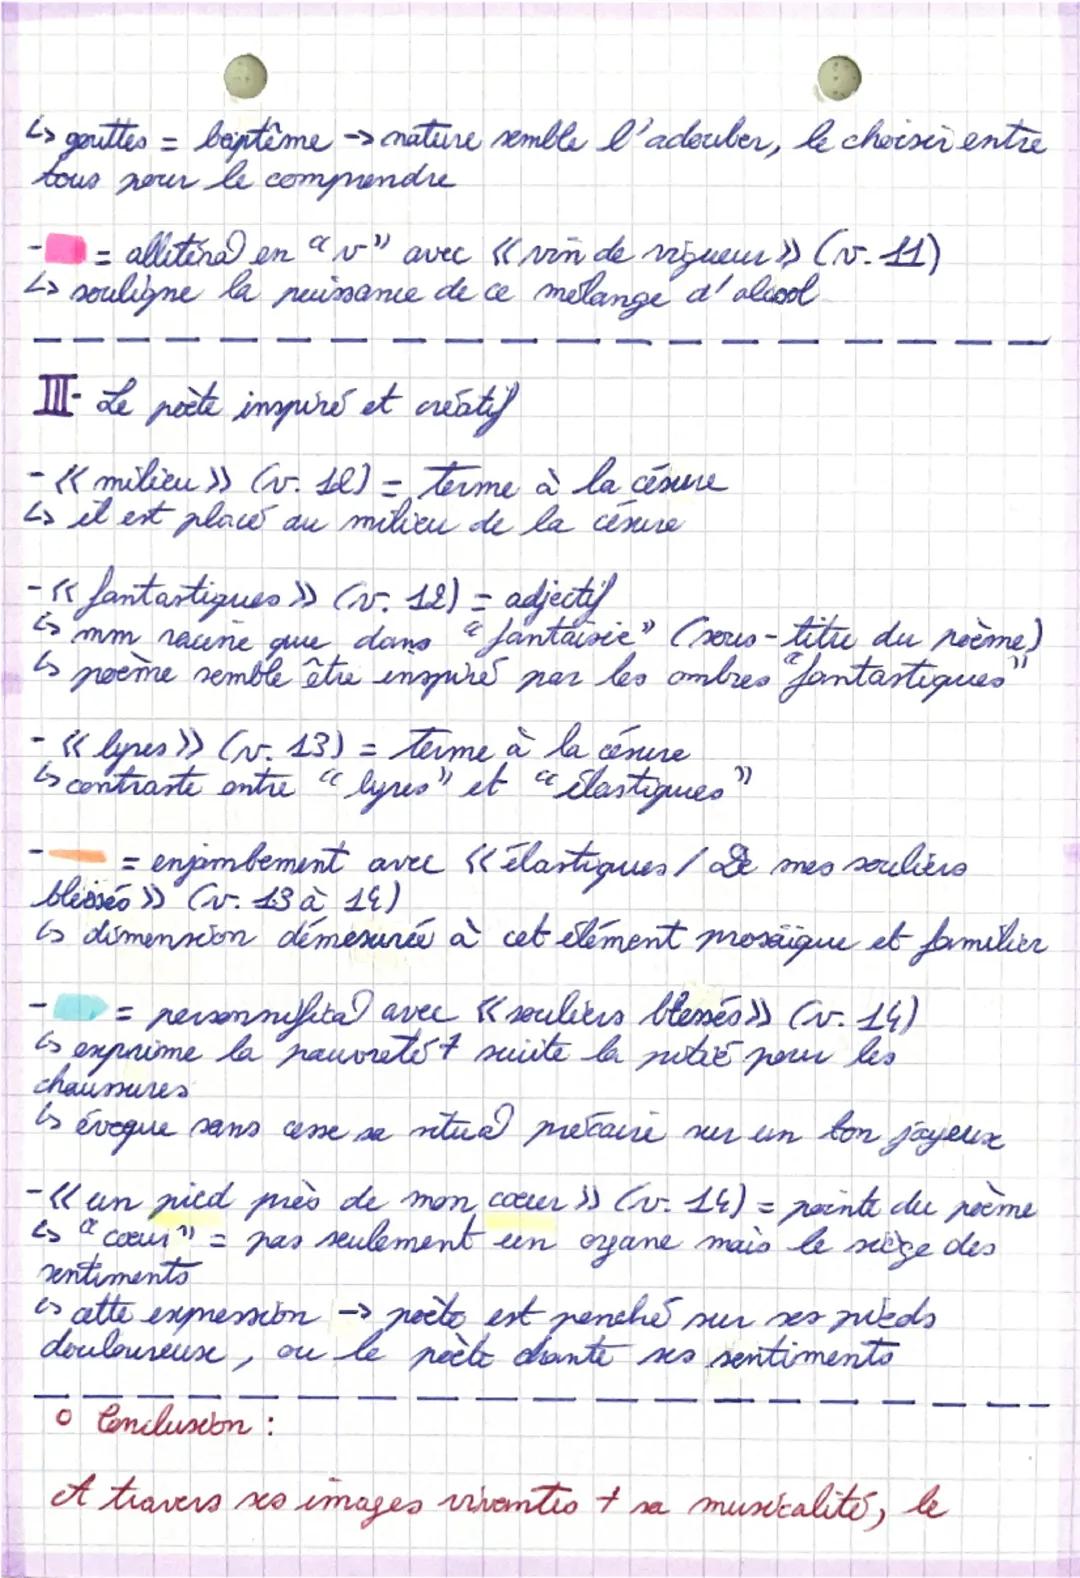 ↳ gouttes = baptême → nature semble l'adouber, le choisir entre
tous pour le comprendre
- = allitéra° en "v" avec « vin de vigueur » (v. 11)
↳ souligne la puissance de ce mélange d'alcool
III- Le poète inspiré et créatif
- « milieu » (v. 12) = terme à la césure
↳ il est placé au milieu de la césure
- « fantastiques » (v. 12) = adjectif
↳ mm racine que dans "fantaisie" (sous-titre du poème)
↳ poème semble être inspiré par les ombres "fantastiques"
- « lyres » (v. 13) = terme à la césure
↳ contraste entre "lyres" et "élastiques"
- = enjambement avec « élastiques / De mes souliers
blessés » (v. 13 à 14)
↳ dimension démesurée à cet élément prosaïque et familier
- = personnifica° avec « souliers blessés » (v. 14)
↳ exprime la pauvreté + suite la pitié pour les
chaussures
↳ évoque sans cesse sa situa° précaire sur un ton joyeux
- « un pied près de mon coeur » (v. 14) = pointe du poème
↳ "coeur" = pas seulement un organe mais le siège des
sentiments
↳ cette expression → poète est penché sur ses pieds
douloureuse, ou le poète chante ses sentiments
o Conclusion :
A travers ses images vivantes + sa musicalité, le